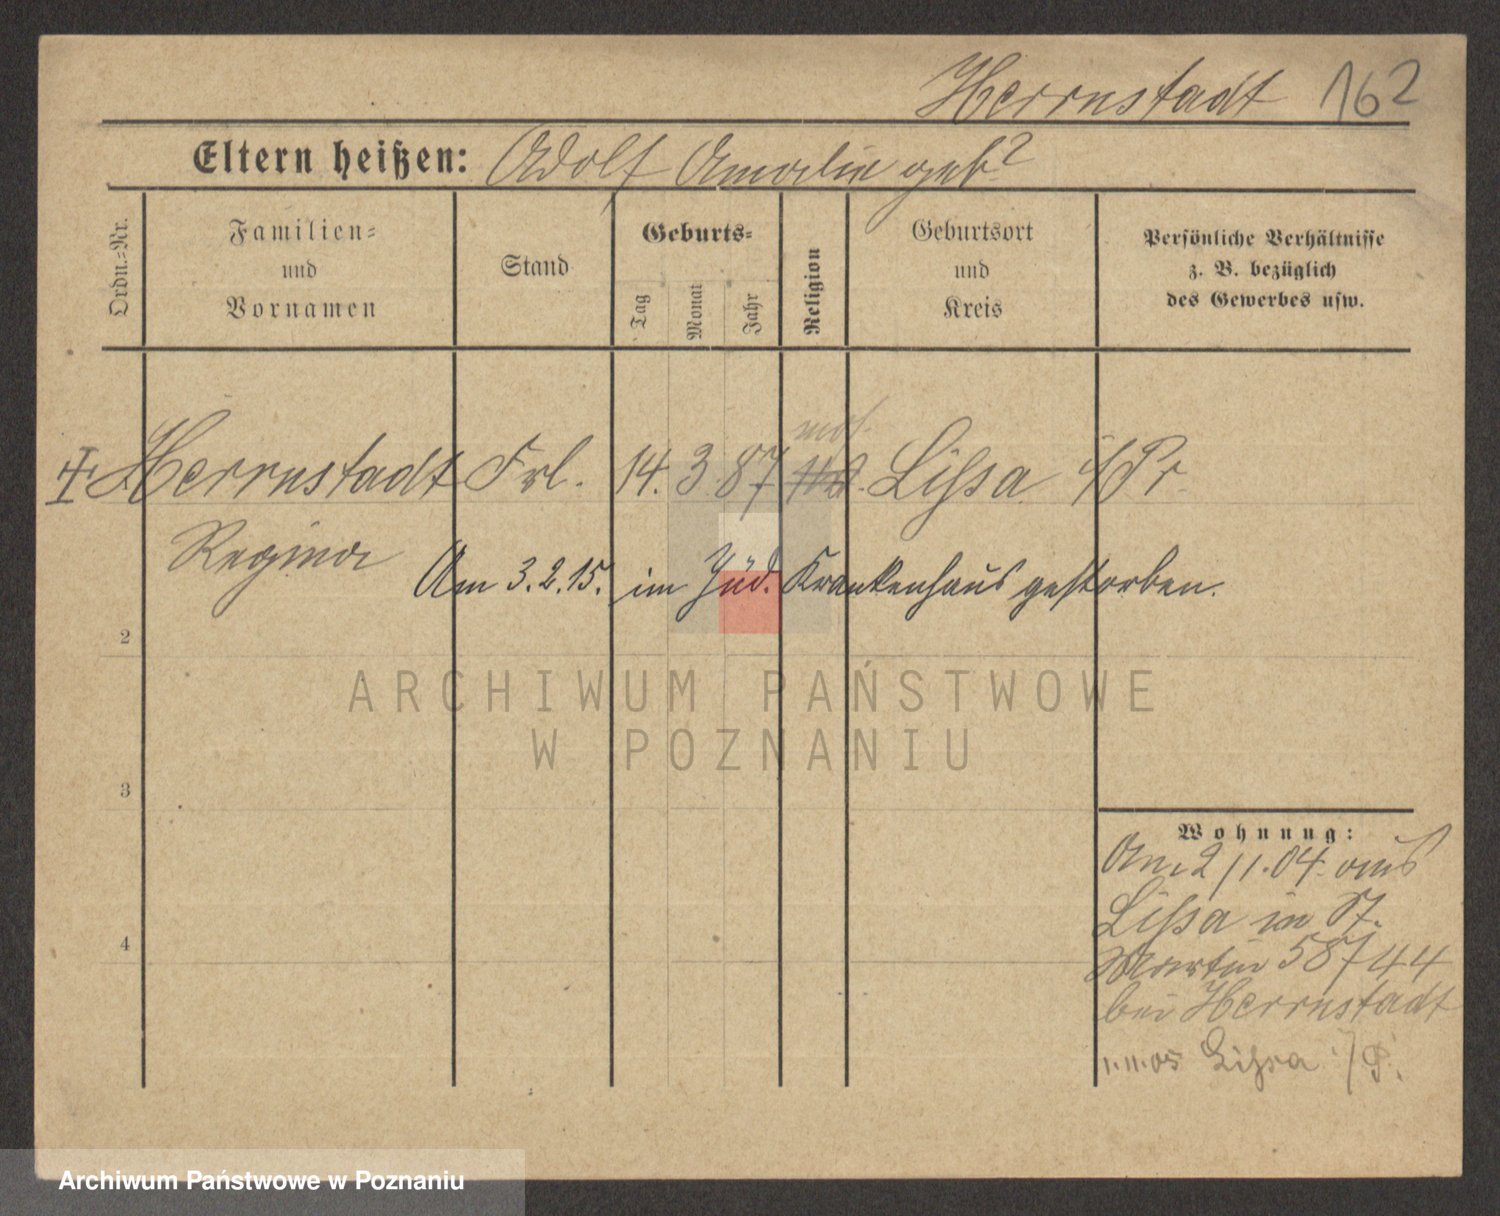 Herrnstadt 162
Eltern heißen: Adolf Amalie geb?
Ordn.=Nr.
Familien=
und
Vornamen
Stand
Geburts=
Tag
Monat
Jahr
Religion
Geburtsort
und
Kreis
Persönliche Verhältnisse
z. B. bezüglich
des Gewerbes usw.
mos.
Herrnstadt Frl. 14. 3. 87 Lissa i/Pr
Regina
Am 3.2.15. im Jüd. Krankenhaus gestorben.
2
ARCHIWUM PAŃSTWOWE
W POZNANIU
3
4
Wohnung:
Am 2/1.04. aus
Lissa in St.
Martin 58/44
bei Herrnstadt
1.11.05 Lissa i/P.
Archiwum Państwowe w Poznaniu